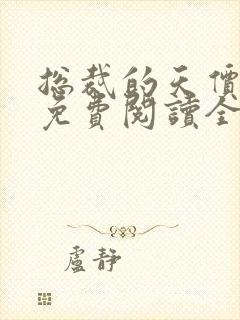 总裁的天價
免費閱讀全
盧静